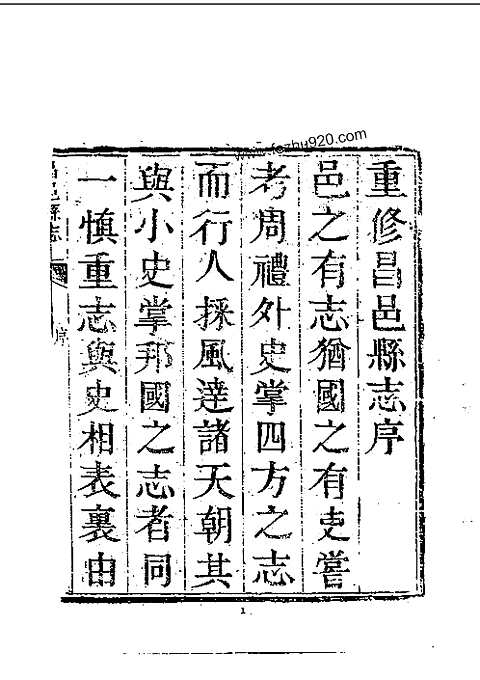 重修昌邑縣志序
邑之有志猶國之有史嘗
考周禮外史掌四方之志
而行人採風達諸天朝其
與小史掌邦國之志者同
一慎重志與史相表裏由
昌邑縣志
序
1